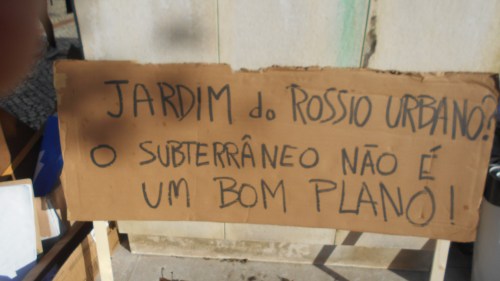 JARDIM do ROSSIO URBANO?
O SUBTERRÂNEO NÃO É
UM BOM PLANO!